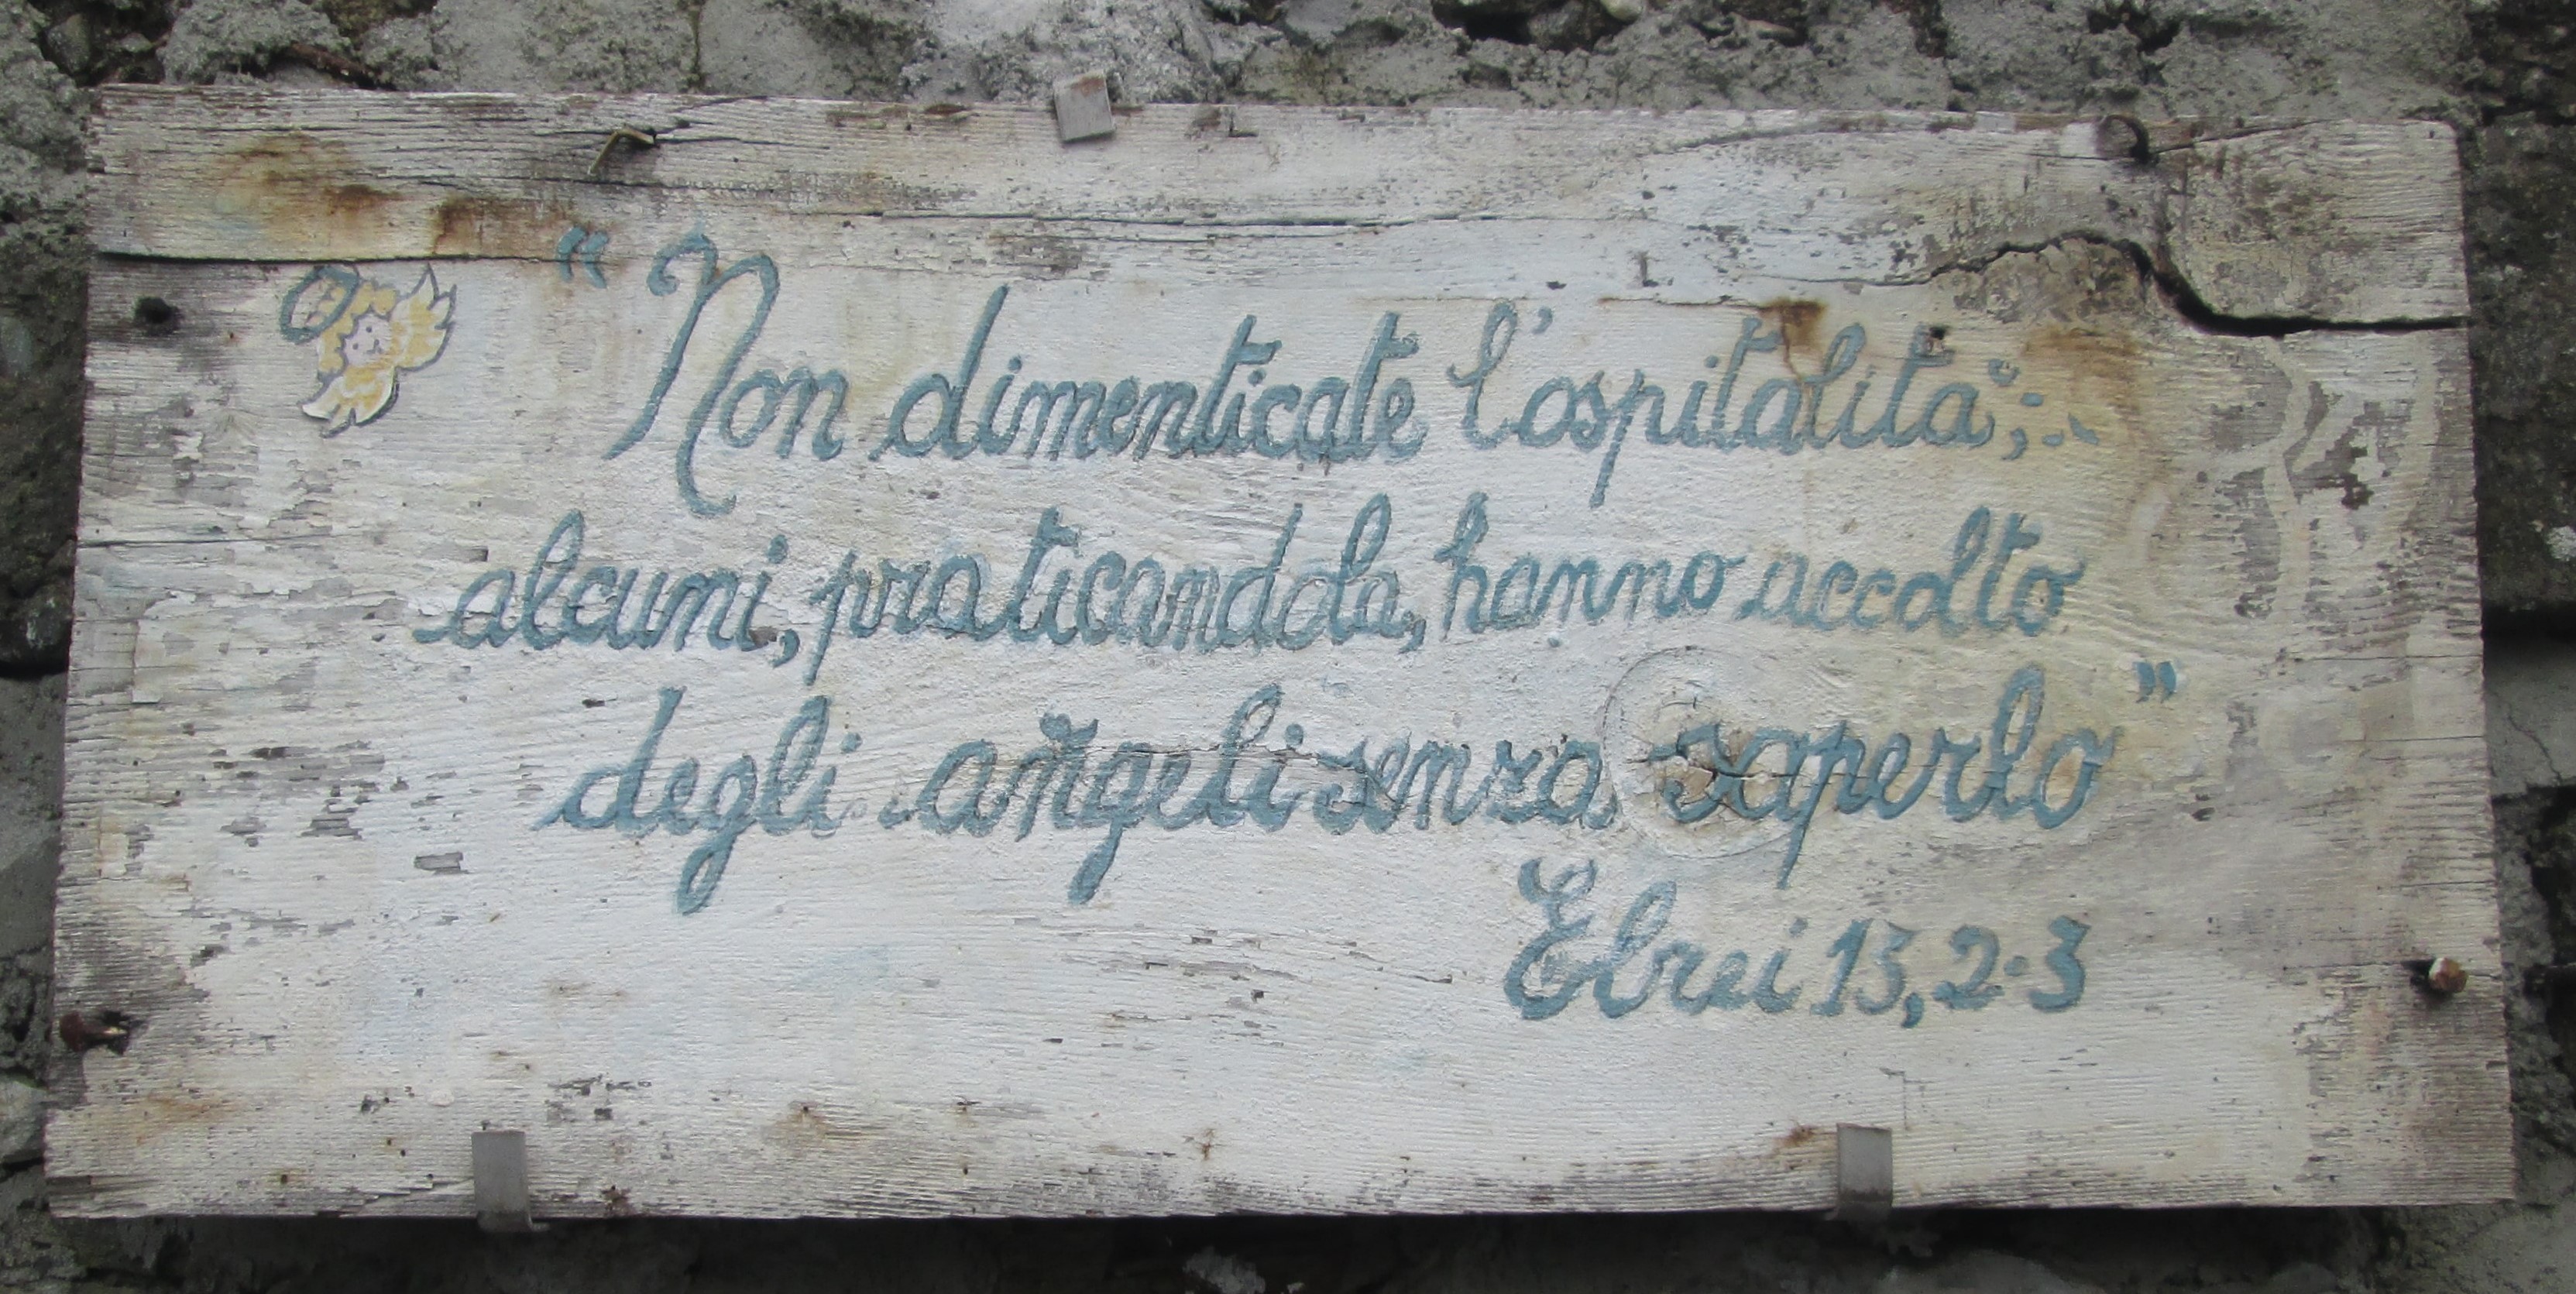 “Non dimenticate l'ospitalità;
alcuni, praticandola, hanno accolto
degli angeli senza saperlo”
Ebrei 13, 2-3